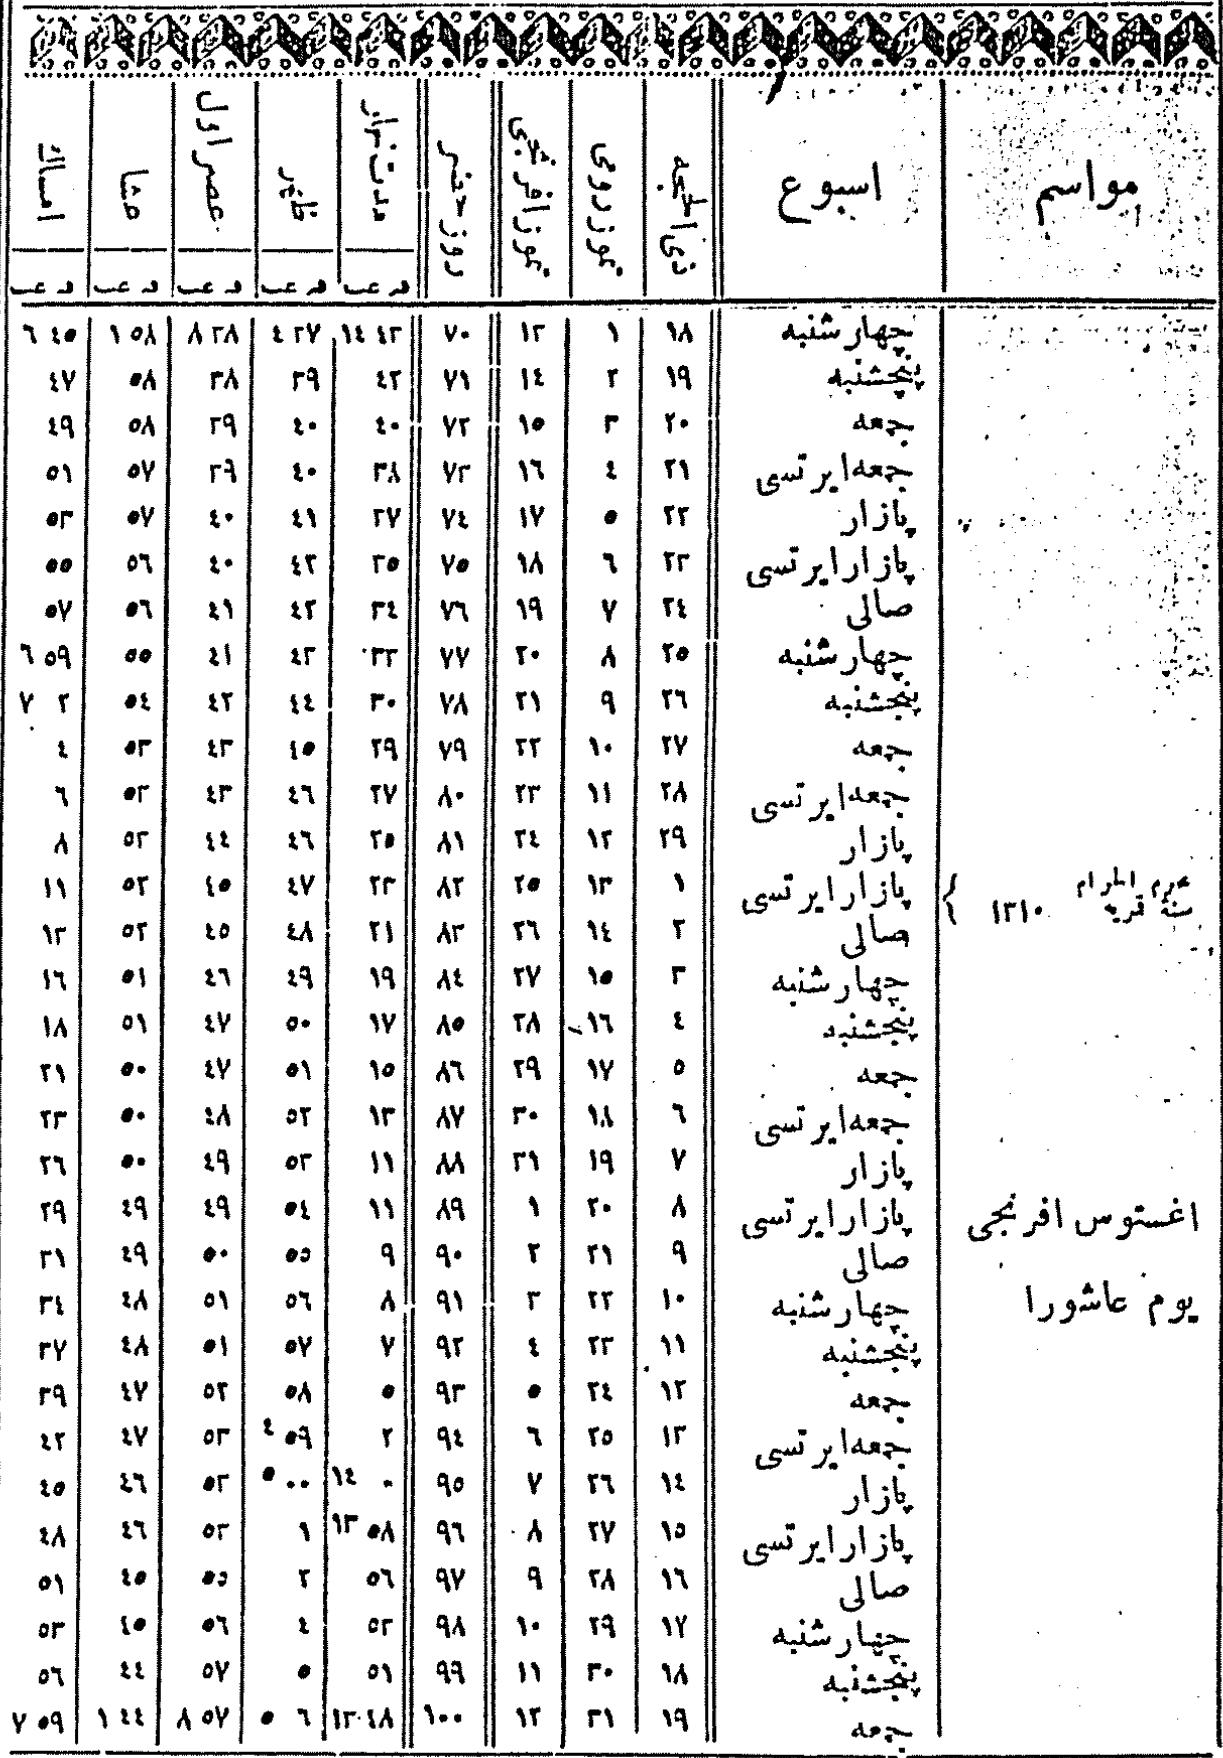 مواسم اسبوع ذی الحجه تموز رومی تموز افرنجی روز حضر مدت نهار ظهر عصر اول عشا امساك
چهارشنبه ١٨ ١ ١٣ ٧٠ ٤٣ ١٤ ٣٧ ٤ ٣٨ ٨ ٥٨ ١ ٤٥ ٦
پنجشنبه ١٩ ٢ ١٤ ٧١ ٤٢ ٣٩ ٣٨ ٥٨ ٤٧
جمعه ٢٠ ٣ ١٥ ٧٢ ٤٠ ٤٠ ٣٩ ٥٨ ٤٩
جمعه ایرتسی ٢١ ٤ ١٦ ٧٣ ٣٨ ٤٠ ٣٩ ٥٧ ٥١
پازار ٢٢ ٥ ١٧ ٧٤ ٣٧ ٤١ ٤٠ ٥٧ ٥٣
پازار ایرتسی ٢٣ ٦ ١٨ ٧٥ ٣٥ ٤٢ ٤٠ ٥٦ ٥٥
صالی ٢٤ ٧ ١٩ ٧٦ ٣٤ ٤٢ ٤١ ٥٦ ٥٧
چهارشنبه ٢٥ ٨ ٢٠ ٧٧ ٣٢ ٤٣ ٤١ ٥٥ ٥٩ ٦
پنجشنبه ٢٦ ٩ ٢١ ٧٨ ٣٠ ٤٤ ٤٢ ٥٤ ٢ ٧
جمعه ٢٧ ١٠ ٢٢ ٧٩ ٢٩ ٤٥ ٤٣ ٥٣ ٤
جمعه ایرتسی ٢٨ ١١ ٢٣ ٨٠ ٢٧ ٤٦ ٤٣ ٥٣ ٦
پازار ٢٩ ١٢ ٢٤ ٨١ ٢٥ ٤٦ ٤٤ ٥٢ ٨
محرم الحرام سنۀ قمریه ١٣١٠ پازار ایرتسی ١ ١٣ ٢٥ ٨٢ ٢٣ ٤٧ ٤٥ ٥٢ ١١
صالی ٢ ١٤ ٢٦ ٨٣ ٢١ ٤٨ ٤٥ ٥٢ ١٣
چهارشنبه ٣ ١٥ ٢٧ ٨٤ ١٩ ٤٩ ٤٦ ٥١ ١٦
پنجشنبه ٤ ١٦ ٢٨ ٨٥ ١٧ ٥٠ ٤٧ ٥١ ١٨
جمعه ٥ ١٧ ٢٩ ٨٦ ١٥ ٥١ ٤٧ ٥٠ ٢١
جمعه ایرتسی ٦ ١٨ ٣٠ ٨٧ ١٣ ٥٢ ٤٨ ٥٠ ٢٣
پازار ٧ ١٩ ٣١ ٨٨ ١١ ٥٣ ٤٩ ٥٠ ٢٦
اغستوس افرنجی پازار ایرتسی ٨ ٢٠ ١ ٨٩ ١١ ٥٤ ٤٩ ٤٩ ٢٩
صالی ٩ ٢١ ٢ ٩٠ ٩ ٥٥ ٥٠ ٤٩ ٣١
یوم عاشورا چهارشنبه ١٠ ٢٢ ٣ ٩١ ٨ ٥٦ ٥١ ٤٨ ٣٤
پنجشنبه ١١ ٢٣ ٤ ٩٢ ٧ ٥٧ ٥١ ٤٨ ٣٧
جمعه ١٢ ٢٤ ٥ ٩٣ ٥ ٥٨ ٥٢ ٤٧ ٣٩
جمعه ایرتسی ١٣ ٢٥ ٦ ٩٤ ٢ ٥٩ ٤ ٥٣ ٤٧ ٤٢
پازار ١٤ ٢٦ ٧ ٩٥ ٠ ١٤ ٠٠ ٥ ٥٣ ٤٦ ٤٥
پازار ایرتسی ١٥ ٢٧ ٨ ٩٦ ٥٨ ١٣ ١ ٥٣ ٤٦ ٤٨
صالی ١٦ ٢٨ ٩ ٩٧ ٥٦ ٢ ٥٥ ٤٥ ٥١
چهارشنبه ١٧ ٢٩ ١٠ ٩٨ ٥٣ ٤ ٥٦ ٤٥ ٥٣
پنجشنبه ١٨ ٣٠ ١١ ٩٩ ٥١ ٥ ٥٧ ٤٤ ٥٦
جمعه ١٩ ٣١ ١٢ ١٠٠ ٤٨ ١٣ ٦ ٥ ٥٧ ٨ ٤٤ ١ ٥٩ ٧